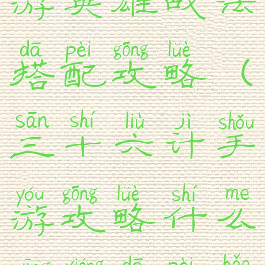 游英雄战法
dā pèi gōng luè
搭配攻略（
sān shí liù jì shǒu
三十六计手
yóu gōng luè shí me
游攻略什么
yīng xióng dā pèi hǎo